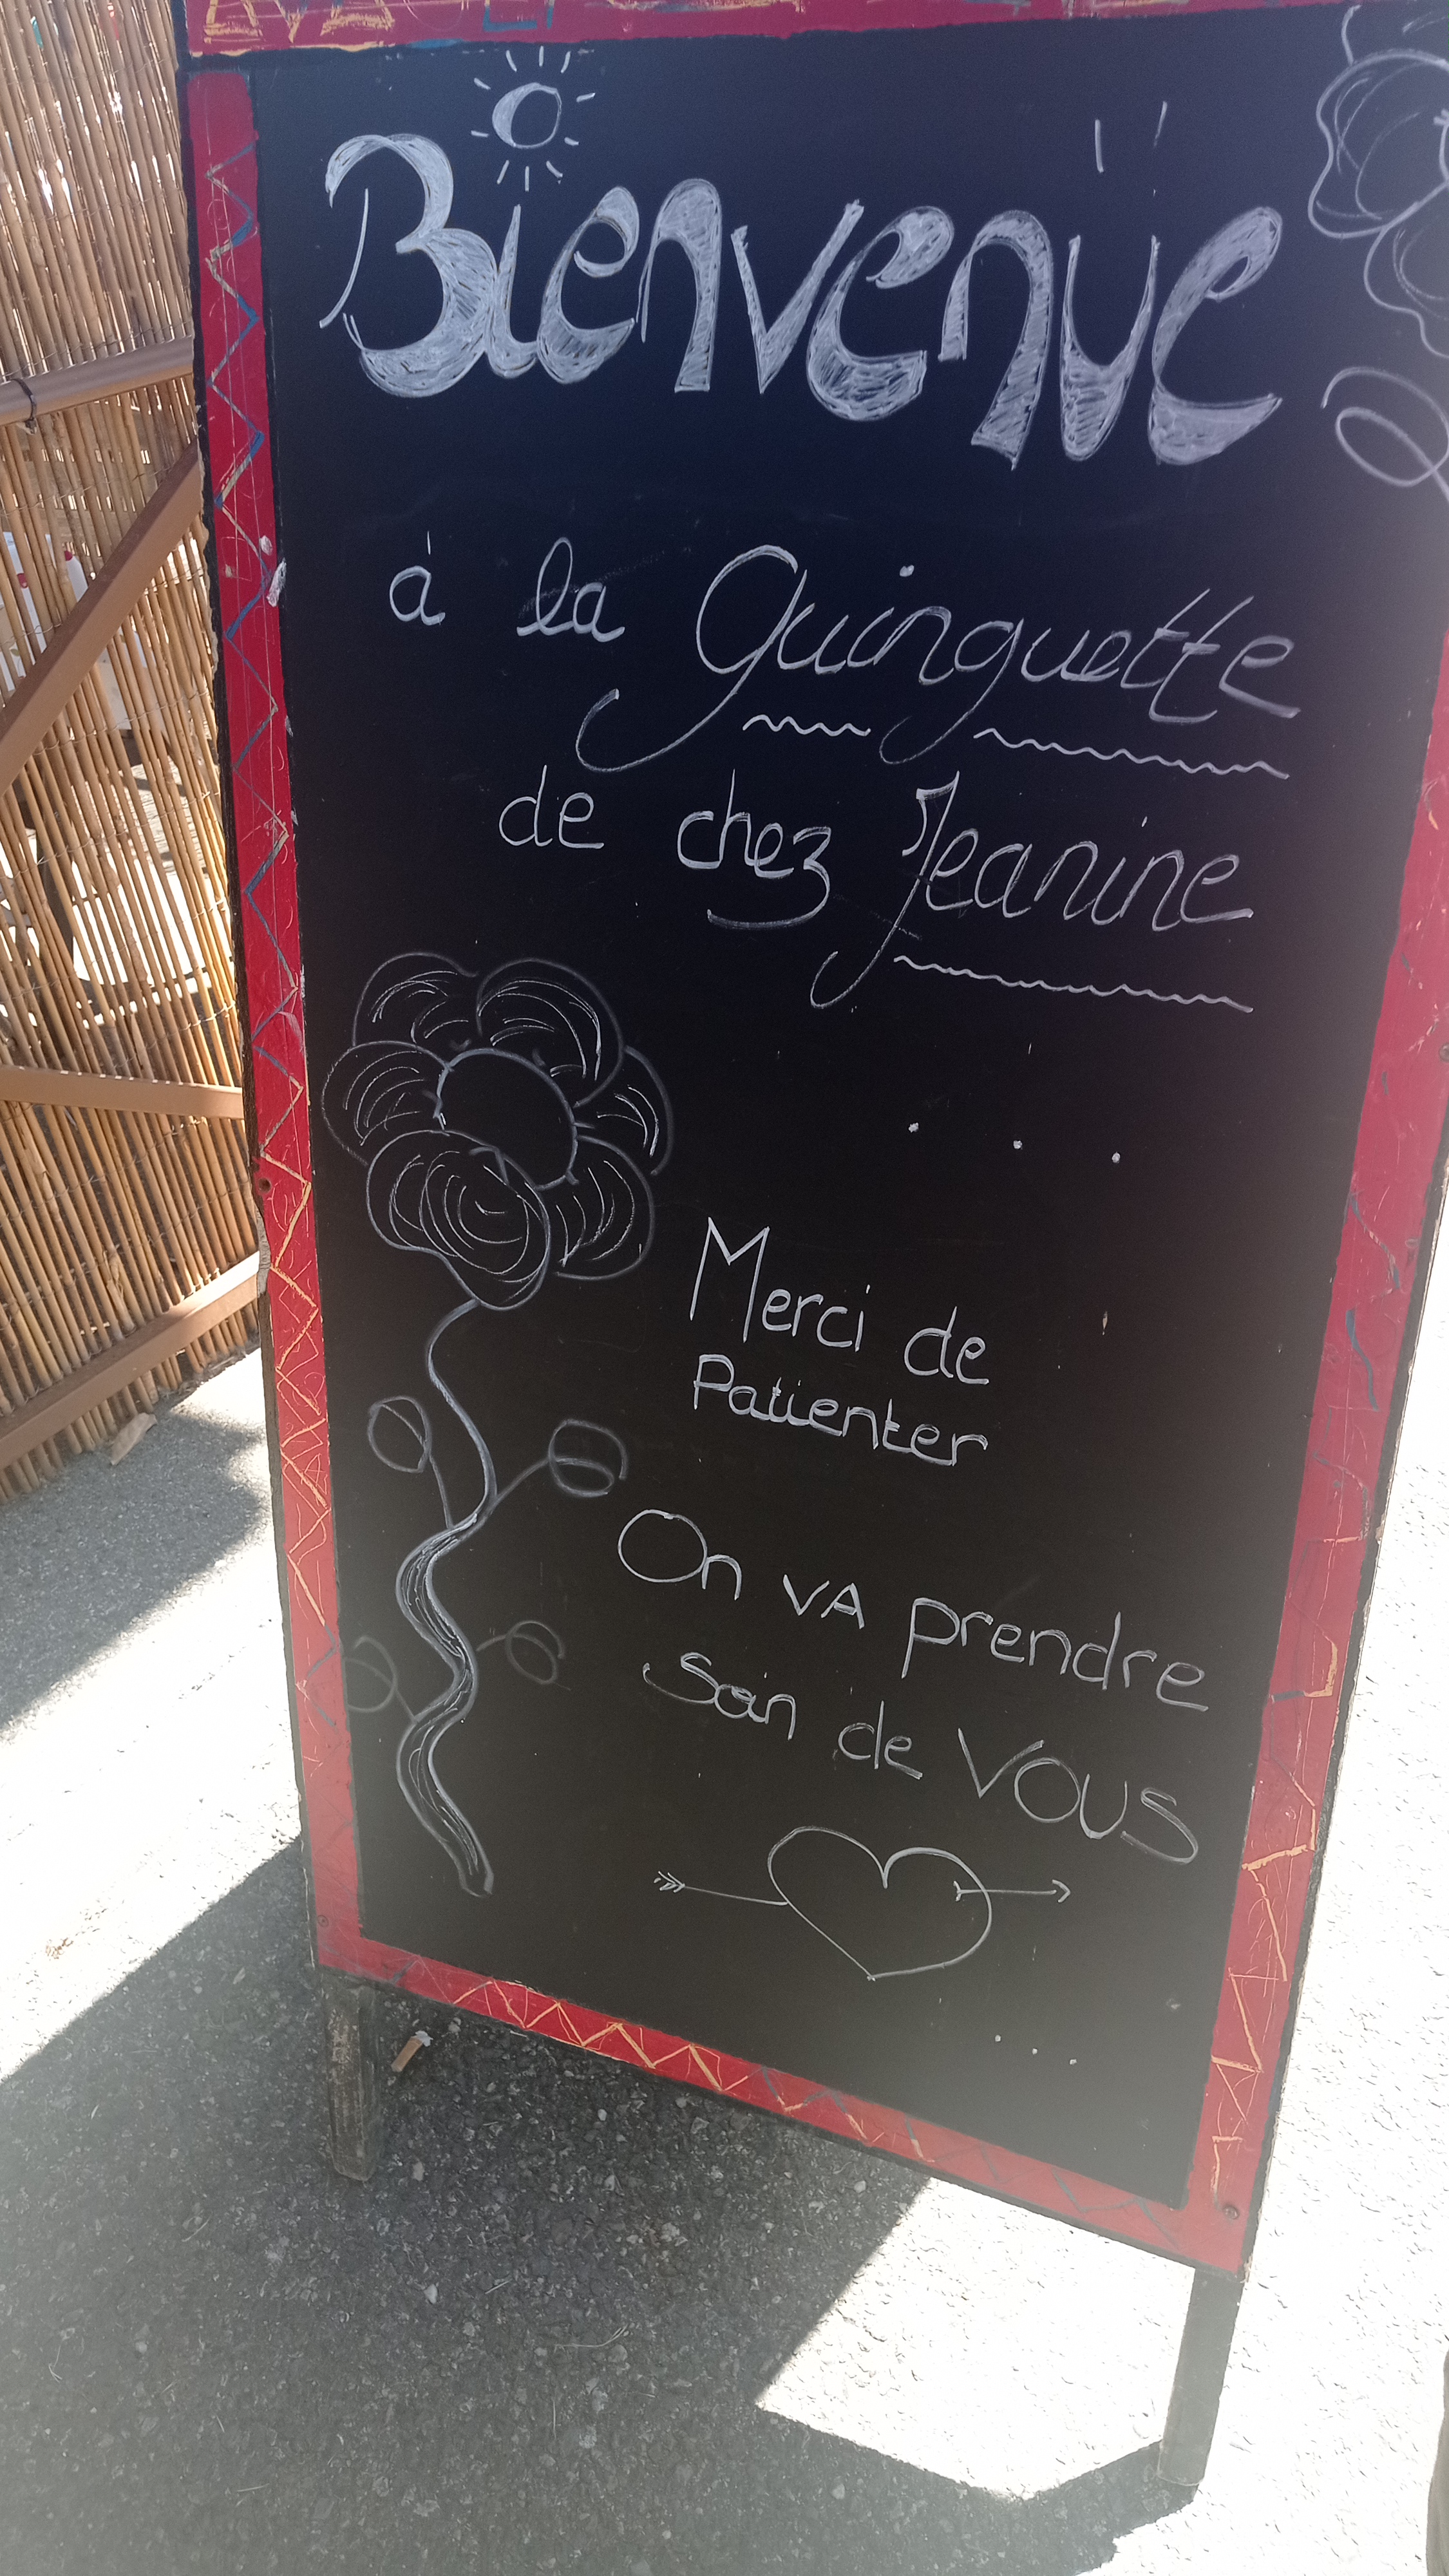 Bienvenue
à la Guinguette
de chez Jeanine
...
Merci de
Patienter
On vA prendre
Soin de VOUS
...